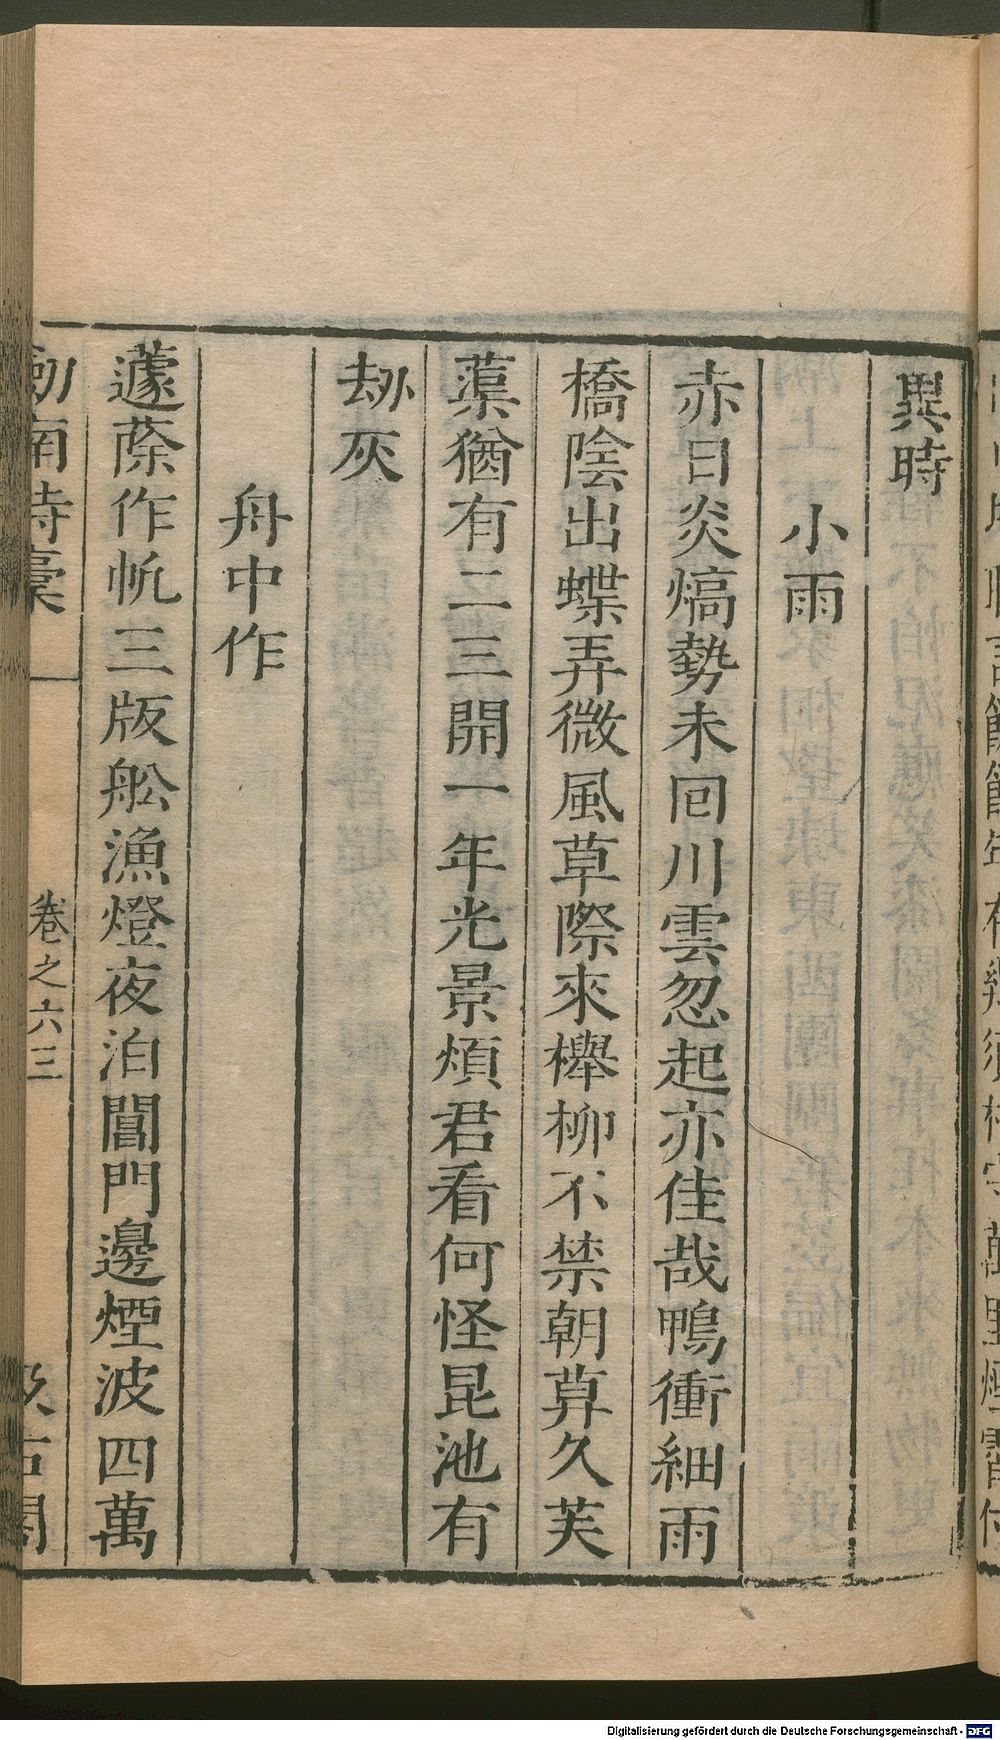 異時
小雨
赤日炎熇勢未囘川雲忽起亦佳哉鴨衝細雨
橋陰出蝶弄微風草際來櫸柳不禁朝莫久芙
蕖猶有二三開一年光景煩君看何怪昆池有
刼灰
舟中作
蘧蒢作帆三版舩漁燈夜泊閶門邊煙波四萬
劍南詩稾
卷之六三
汲古閣
Digitalisierung gefördert durch die Deutsche Forschungsgemeinschaft - DFG